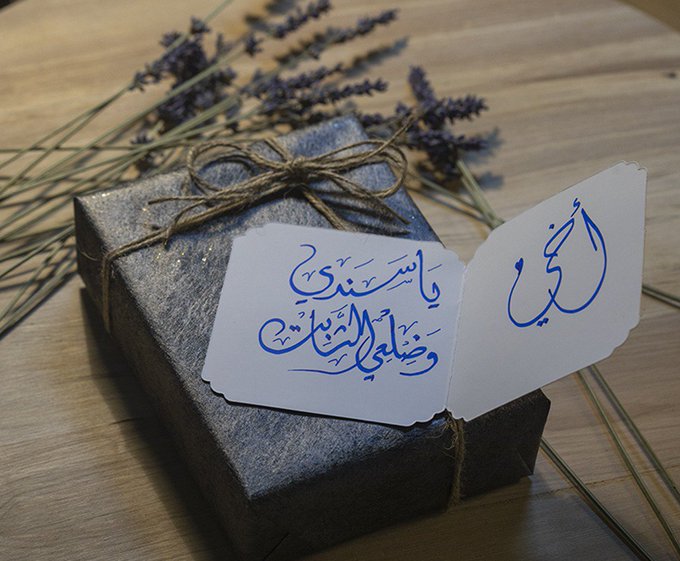 أخي
يَا سَنَدي
وَضِلعي الثَّابت